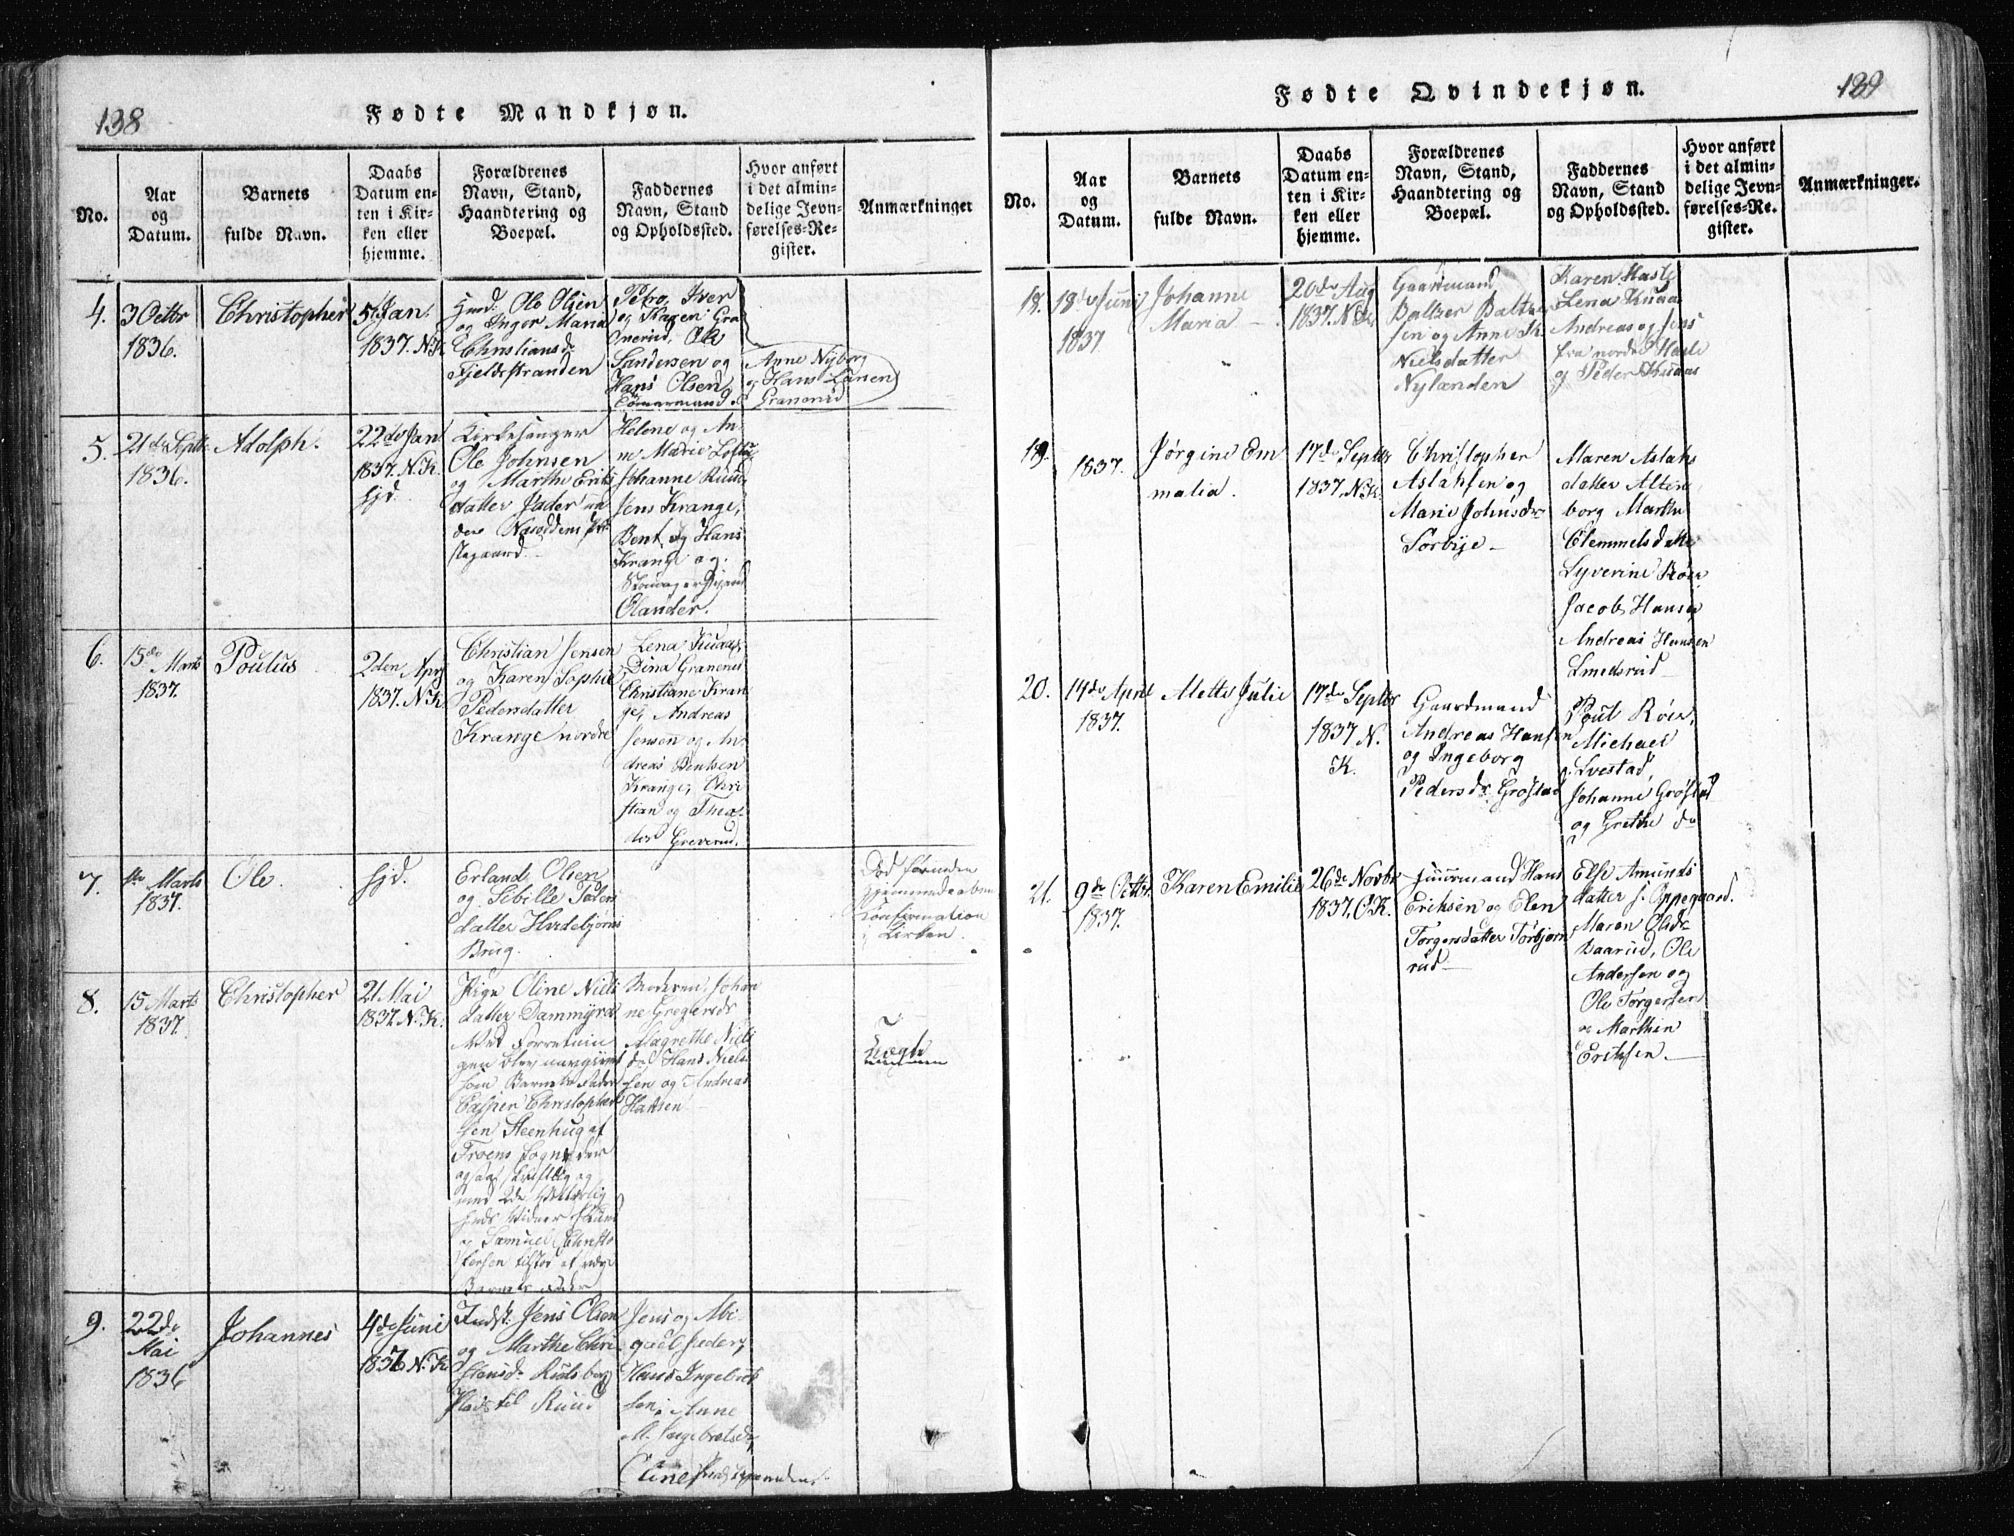 138
Fødte Mandkjøn.
No.
Aar
og
Datum.
Barnets
fulde Navn.
Daabs
Datum en-
ten i Kir-
ken eller
hjemme.
Forældrenes
Navn, Stand,
Haandtering og
Boepæl.
Faddernes
Navn, Stand
og Opholdssted.
Hvor anført
i det almin-
delige Jevn-
førelses-Re-
gister.
Anmærkninger
4.
3 Octbr
1836.
Christopher
5 Jan.
1837. N.K.
Ole Olsen
og Inger Maria
Christiansd.
Fjeldstranden
Iver
og Karen Gra
nerud, Ole
Sandersen og
Hans Olsen
Anne Nyborg
og Hans
Granerud
5.
21de Septbr
1836.
Adolph.
22de Jan
1837. N.K.
hjd.
Kirkesanger
Ole Johnsen
og Marthe Eriks
datter Jader un
der Næsoddens Præ
stegaard.
Helene og An-
ne Marie
Johanne Ruud,
Jens Krange,
Bent og Hans
Krange og
Olander.
6.
15de Marts
1837.
Poulus
2den April
1837. N.K.
Christian Jensen
og Karen Sophie
Pedersdatter
Krange nordre
Lena
Dina Granerud
Christiane Kran
ge, Andreas
Jensen og An
dreas Bentsen
Krange, Chri
stian og Theo-
dor Greverud.
7.
Marts
1837.
Ole
hjd.
Erland Olsen
og Sibille Peders
datter Hvidebjørns
Brug.
Død førinden
Hjemmedaabens
Confirmation
i Kirken.
8.
15 Marts
1837.
Christopher
21 Mai
1837. N.K.
Pige Oline Niels
datter Dammyra
Ved Forretnin
gen blev angivet
som Barnets Fader
Casper Christophers
sen Steenhug af
Froens Sogn, der
ogsaa skriftlig og
med 2de
Vidner
og Samuel Christo
fersen tilstod at være
Barnets Fader
Moderen, Johan
ne Gregersd.
Magrethe Niels
d. Hans Niel-
sen og Andreas
Hansen
Uægte
9.
22de
Mai
1836
Johannes
4de Juni
1837 N.K.
Indst. Jens Olsen
og Marthe Chri
stensd.
Plads til Ruud
Jens og Abi
gael Jader,
Hans Ingebret
sen, Anne
M. Ingebretsd.
Oline
139
Fødte Qvindekjøn.
No.
Aar
og
Datum.
Barnets
fulde Navn.
Daabs
Datum en-
ten i Kir-
ken eller
hjemme.
Forældrenes
Navn, Stand,
Haandtering og
Boepæl.
Faddernes
Navn, Stand
og Opholdssted.
Hvor anført
i det almin-
delige Jevn-
førelses-Re-
gister.
Anmærkninger.
18.
18de Juni
1837
Johanne
Maria
20de Aug
1837. N.K.
Gaardmand
Baltser Balt
sen og Anne K.
Nielsdatter
Nylænden
Karen Hasle
Lena
Andreas og Jens
fra nordre Hasle
og Peder
19.
1837.
Jørgine Em
malia.
17de Septbr
1837. N.K.
Christopher
Aslaksen og
Marie Johnsdr
Sørbye
Maren Aslaks
datter Alten
borg Marthe
Clemmetsdatter
Syverine Røer
Jacob Hansen
Andreas Hansen
Smedsrud
20.
14de April
1837.
Mette Julie
17de Septbr
1837 N.
K.
Gaardmand
Andreas Hansen
og Ingeborg
Pedersdr. Grøstad
Poul Røer,
Michael
Svestad,
Johanne Grøstad
og Grethe do
21.
9de Octbr.
1837.
Karen Emilie
26de Novbr
1837. O.K.
Huusmand Hans
Eriksen og Elen
Torgersdatter Torbjørn
rud
Else Amunds
datter s. Oppegaard.
Maren Olsdr
Baarud, Ole
Andersen og
Ole Torgersen
og Marthin
Eriksen.